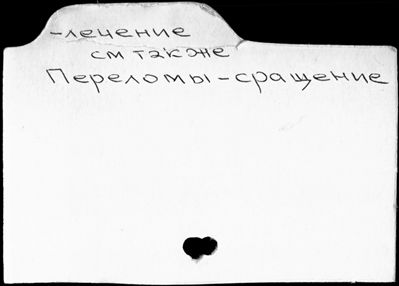 -лечение
см также
Переломы-сращение